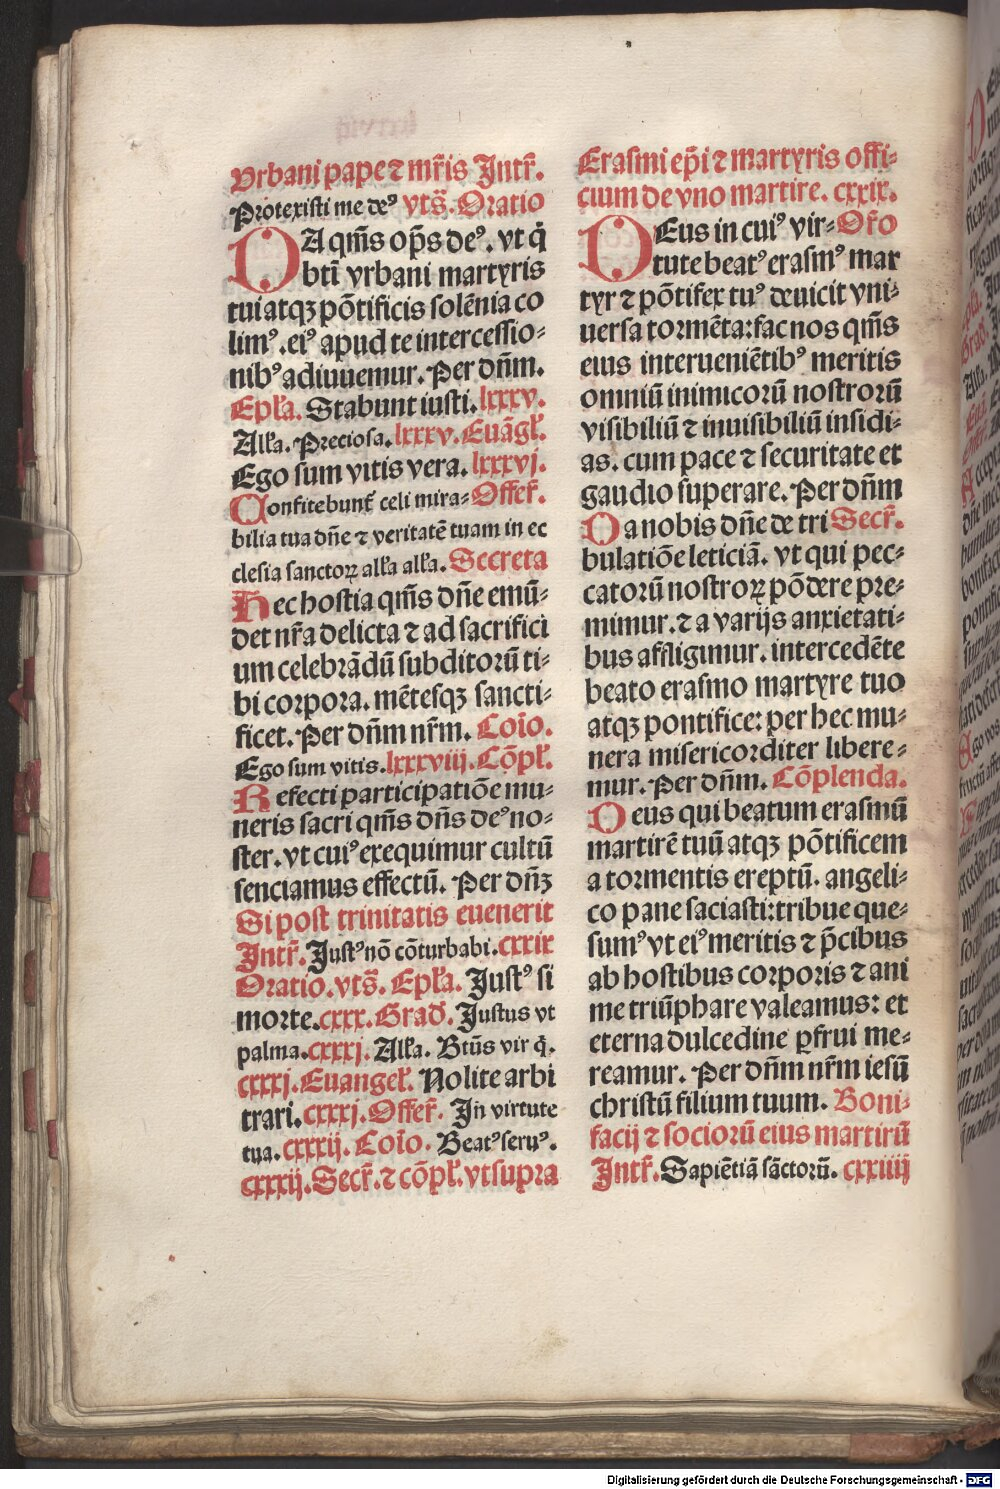 Urbani pape ⁊ mr̃is Intr̃.
Protexisti me deꝰ vts̃. Oratio
DA qm̃s op̃s deꝰ. vt q̃
btĩ vrbani martyris
tui atqꝫ põtificis solẽnia co
limꝰ. eiꝰ apud te intercessio⸗
nibꝰ adiuuemur. Per dñm.
Epl̃a. Stabunt iusti. lxxxv.
All̃a. Preciosa. lxxxv. Euãgl̃.
Ego sum vitis vera. lxxxvj.
Confitebunt᷑ celi mira⸗ Offer̃.
bilia tua dñe ⁊ veritatẽ tuam in ec
clesia sanctoꝝ all̃a all̃a. Secreta
Hec hostia qm̃s dñe emũ⸗
det nr̃a delicta ⁊ ad sacrifici
um celebrãdũ subditorũ ti⸗
bi corpora. mẽtesqꝫ sancti⸗
ficet. Per dñm nr̃m. Coĩo.
Ego sum vitis. lxxxviij. Cõpl̃.
Refecti participatiõe mu⸗
neris sacri qm̃s dñs deꝰ no⸗
ster. vt cuiꝰ exequimur cultũ
senciamus effectũ. Per dñꝫ
Si post trinitatis euenerit
Intr̃. Iustꝰ nõ cõturbabi. cxxix
Oratio. vts̃. Epl̃a. Iustꝰ si
morte. cxxx. Grad̃. Iustus vt
palma. cxxxj. All̃a. Btũs vir q̃.
cxxxj. Euangel̃. Nolite arbi
trari. cxxxj. Offer̃. In virtute
tua. cxxxij. Coĩo. Beatꝰ seruꝰ.
cxxxij. Secr̃. ⁊ cõpl̃. vt supra
Erasmi ep̃i ⁊ martyris offi⸗
cium de vno martire. cxxix.
DEus in cuiꝰ vir⸗ Or̃o
tute beatꝰ erasmꝰ mar
tyr ⁊ põtifex tuꝰ deuicit vni⸗
uersa tormẽta: fac nos qm̃s
eius interueniẽtibꝰ meritis
omniũ inimicorũ nostrorũ
visibiliũ ⁊ inuisibiliũ insidi⸗
as. cum pace ⁊ securitate et
gaudio superare. Per dñm
Da nobis dñe de tri Secr̃.
bulatiõe leticiã. vt qui pec⸗
catorũ nostroꝝ põdere pre⸗
mimur. ⁊ a varijs anxietati⸗
bus affligimur. intercedẽte
beato erasmo martyre tuo
atqꝫ pontifice: per hec mu⸗
nera misericorditer libere⸗
mur. Per dñm. Cõplenda.
Deus qui beatum erasmũ
martirẽ tuũ atqꝫ põtificem
a tormentis ereptũ. angeli⸗
co pane saciasti: tribue que⸗
sumꝰ vt eiꝰ meritis ⁊ p̃cibus
ab hostibus corporis ⁊ ani
me triũphare valeamus: et
eterna dulcedine ꝑfrui me⸗
reamur. Per dñm nr̃m iesũ
christũ filium tuum. Boni⸗
facij ⁊ sociorũ eius martirũ
Intr̃. Sapiẽtiã sãctorũ. cxxiiij
Digitalisierung gefördert durch die Deutsche Forschungsgemeinschaft - DFG